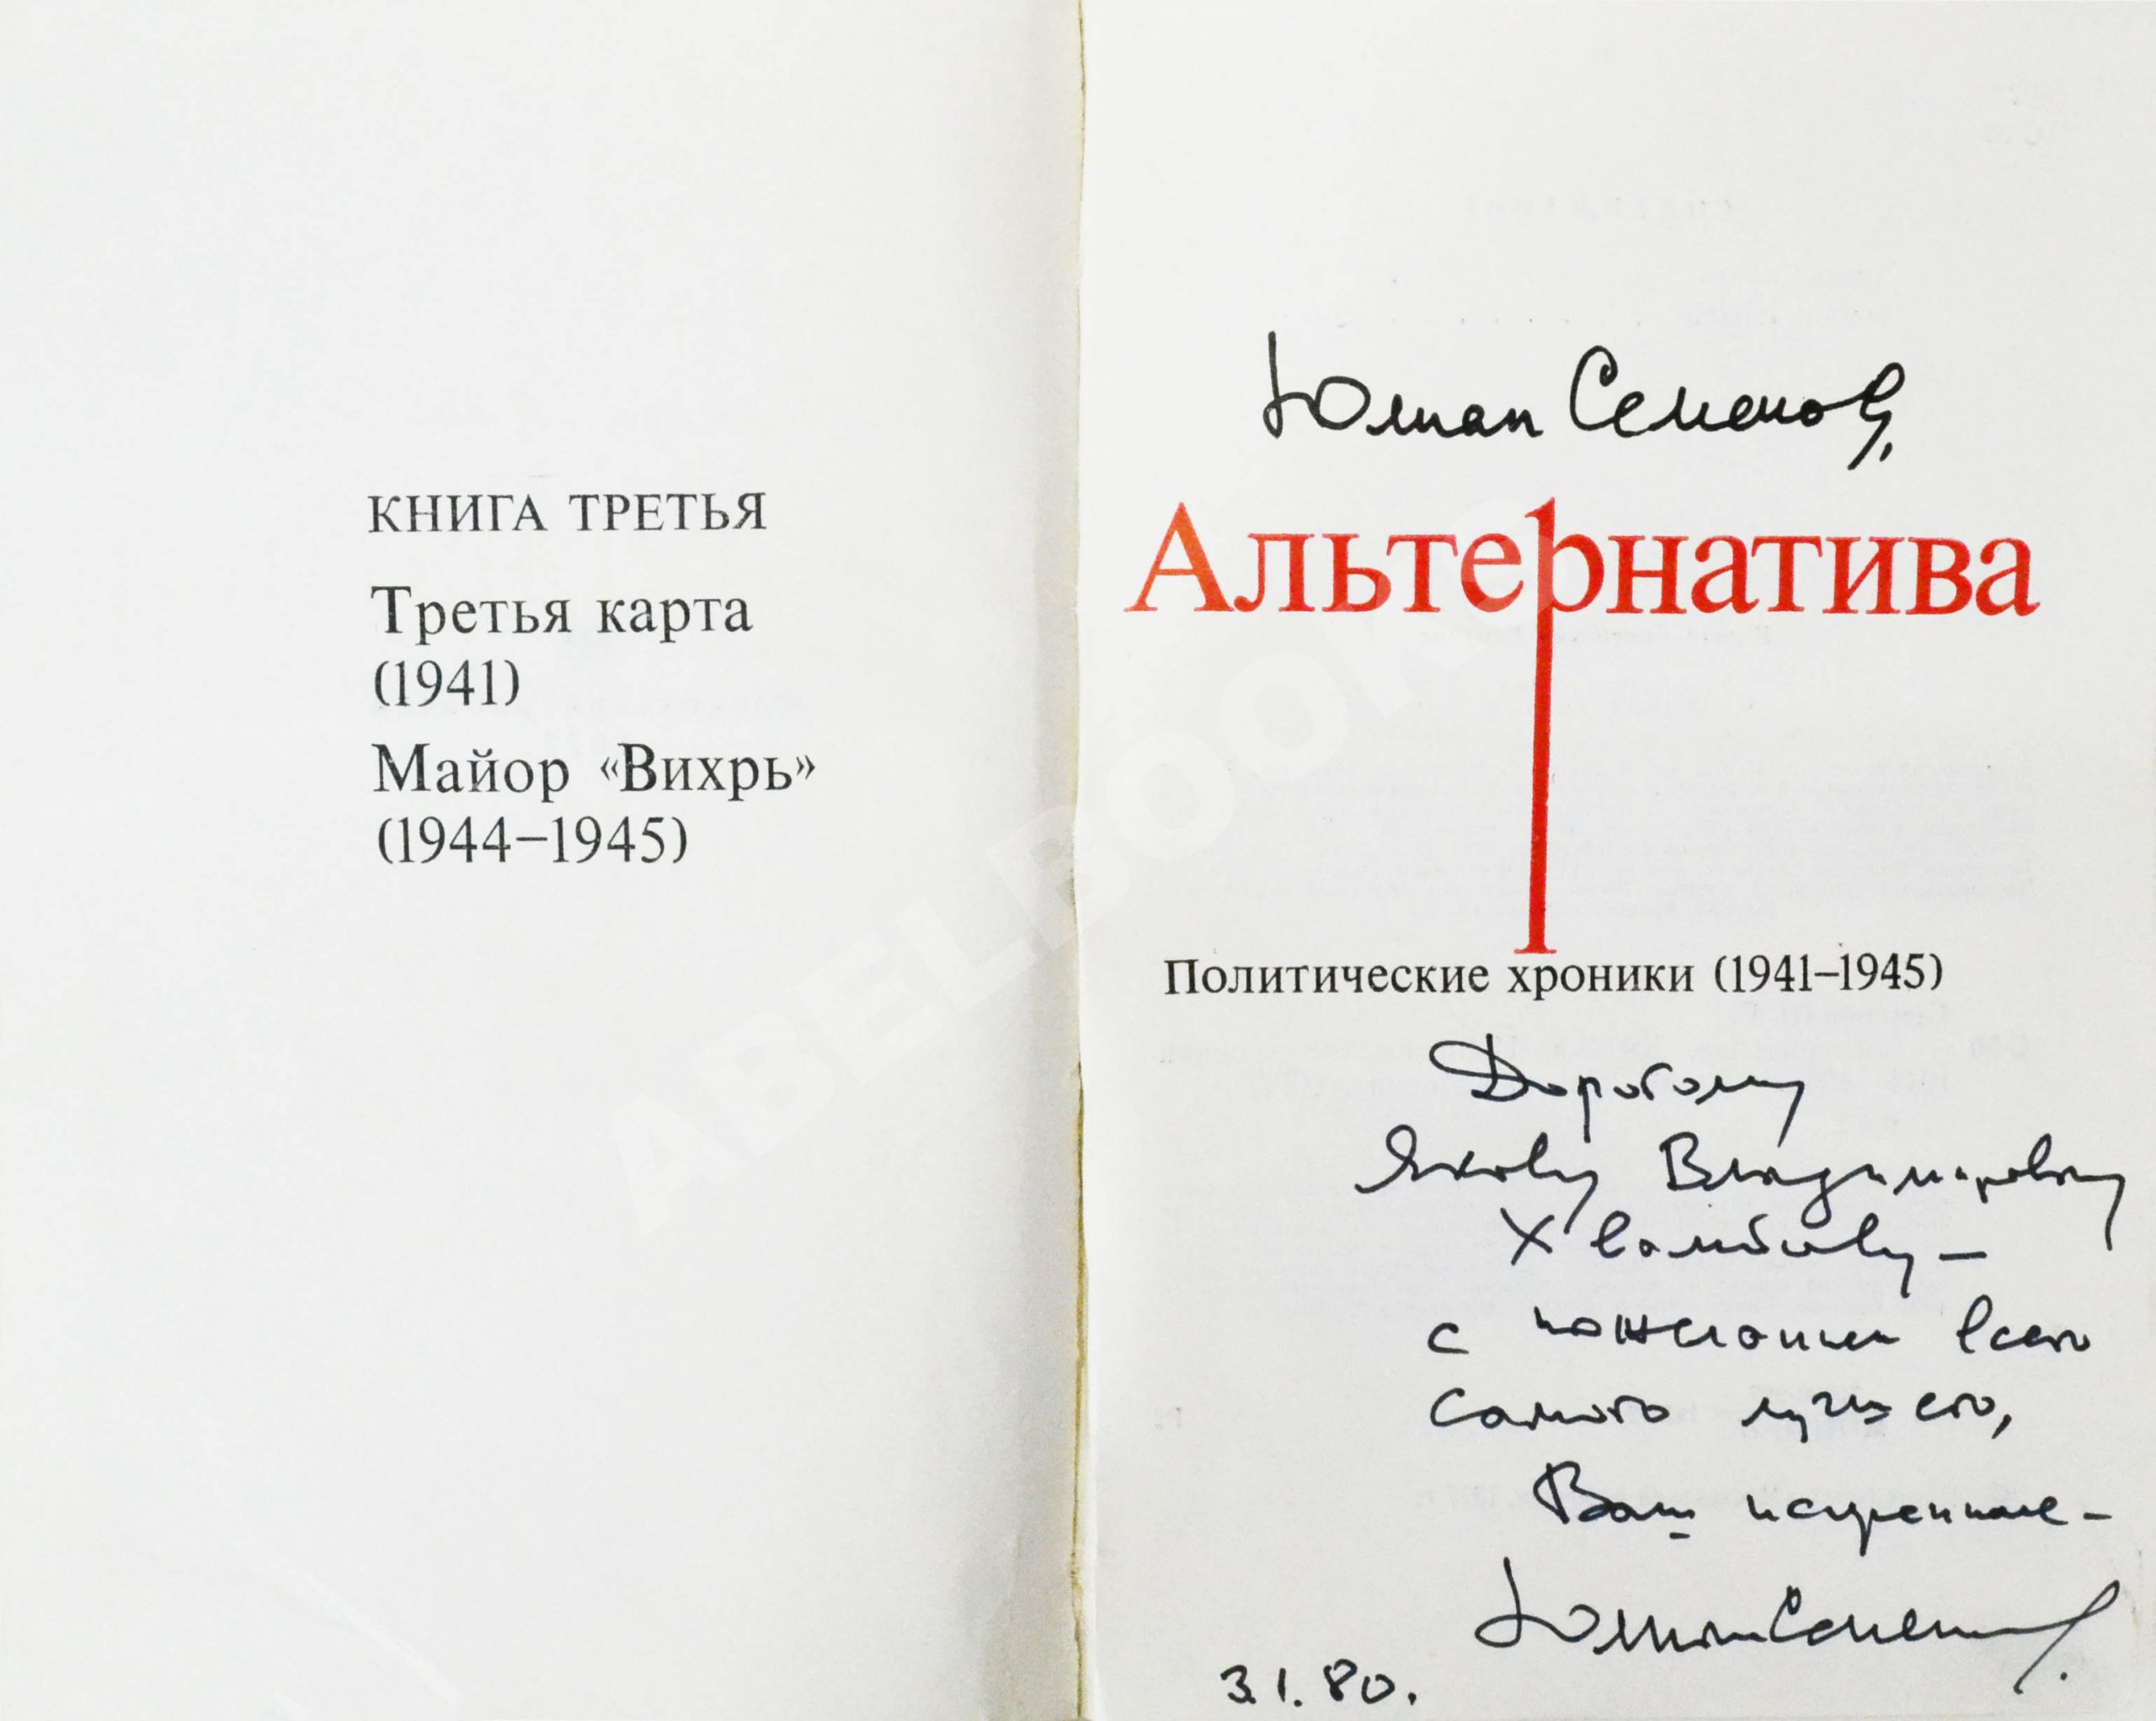 КНИГА ТРЕТЬЯ
Третья карта
(1941)
Майор «Вихрь»
(1944–1945)
Юлиан Семенов,
Альтернатива
Политические хроники (1941–1945)
Дорогому
Якову Владимировичу
–
с пожеланием всего
самого лучшего,
Ваш искренне –
Юлиан Семенов.
3.1.80.
ABELBOOKS